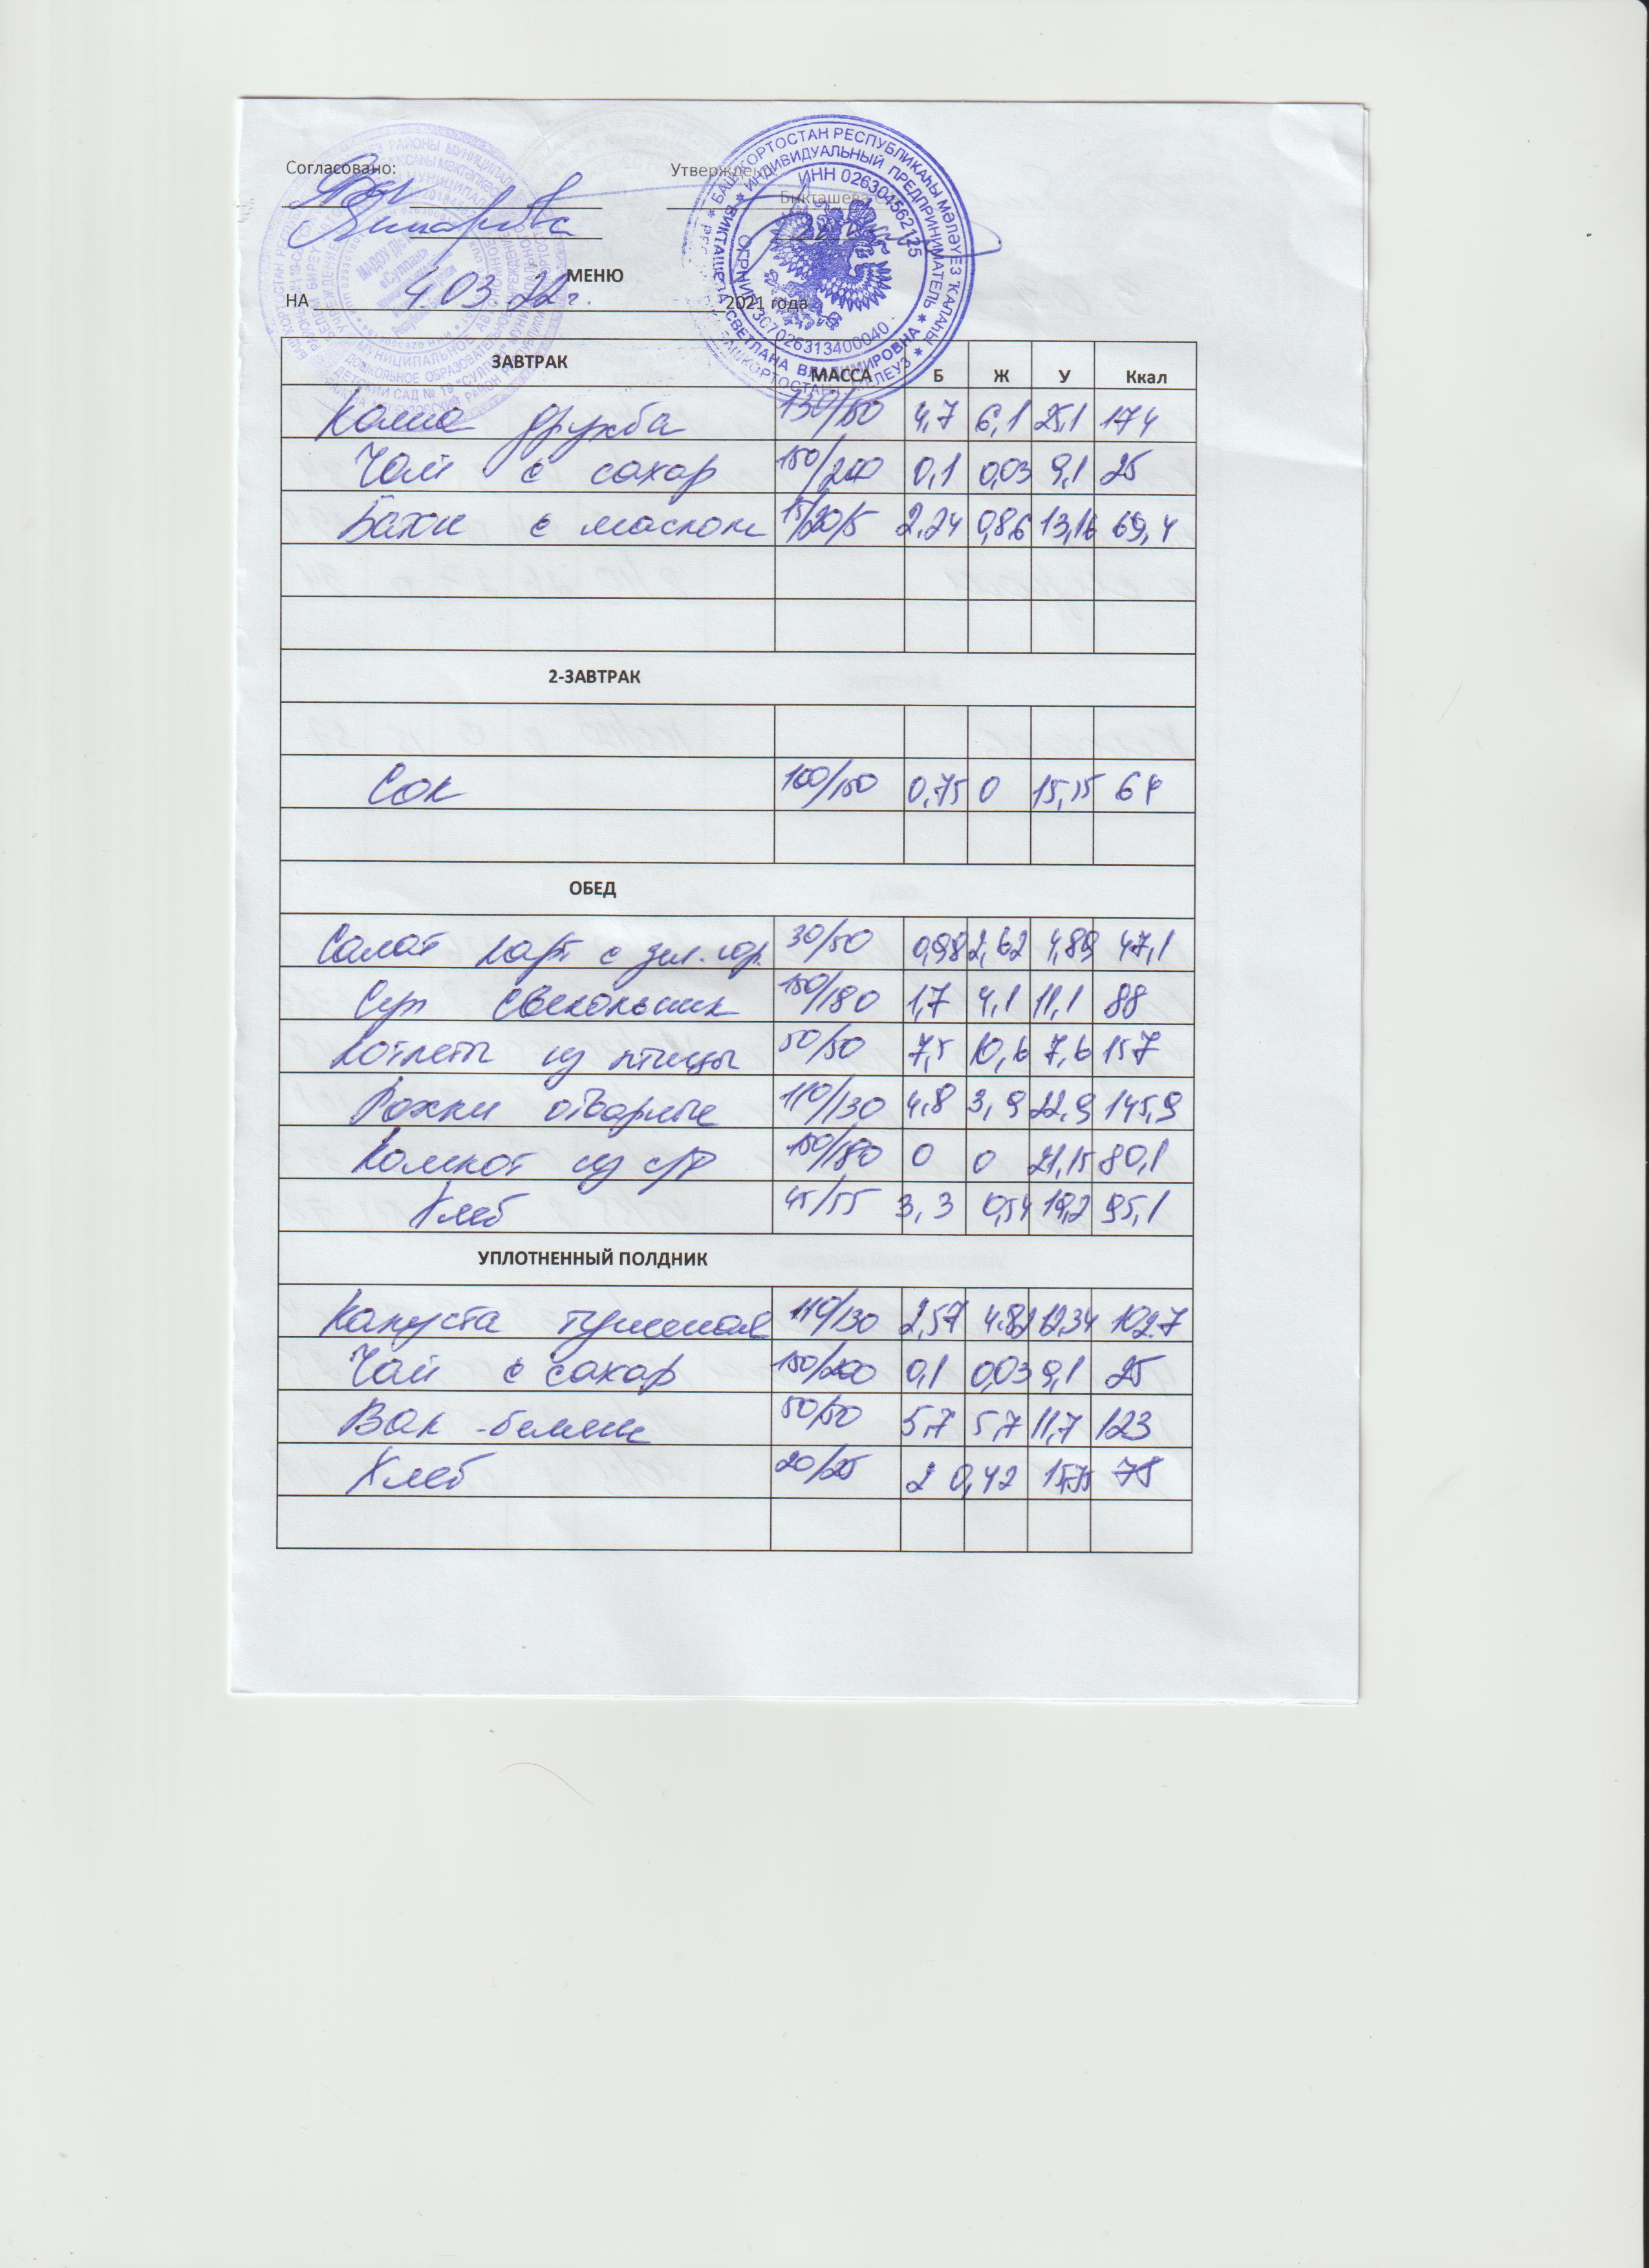 Согласовано: Утверждено
Бикташева С
МЕНЮ
НА 4.03.22 г. 2021 года
ЗАВТРАК МАССА Б Ж У Ккал
Каша дружба 130/150 4,7 6,1 25,1 174
Чай с сахар 150/200 0,1 0,03 9,1 25
Батон с маслом 15/20/5 2,24 0,86 13,16 69,4
2-ЗАВТРАК
Сок 100/150 0,75 0 15,15 64
ОБЕД
Салат карт с зел. гор. 30/50 0,98 2,62 4,89 47,1
Суп свекольник 150/180 1,7 4,1 11,1 88
Котлеты из птицы 50/50 7,5 10,6 7,6 157
Рожки отварные 110/130 4,8 3,9 22,9 145,9
Компот из с/ф 150/180 0 0 21,15 80,1
Хлеб 45/55 3,3 0,54 19,2 95,1
УПЛОТНЕННЫЙ ПОЛДНИК
Капуста тушеная 110/130 2,57 4.82 12,34 102.7
Чай с сахар 150/200 0,1 0,03 9,1 25
Вак-беляш 50/50 5,7 5,7 11,7 123
Хлеб 20/25 2 0,42 15,75 78
БАШҠОРТОСТАН РЕСПУБЛИКАҺЫ МӘЛӘҮЕЗ ҠАЛАҺЫ
ИНДИВИДУАЛЬНЫЙ ПРЕДПРИНИМАТЕЛЬ
БИКТАШЕВА СВЕТЛАНА ВЛАДИМИРОВНА
ИНН 026304562125